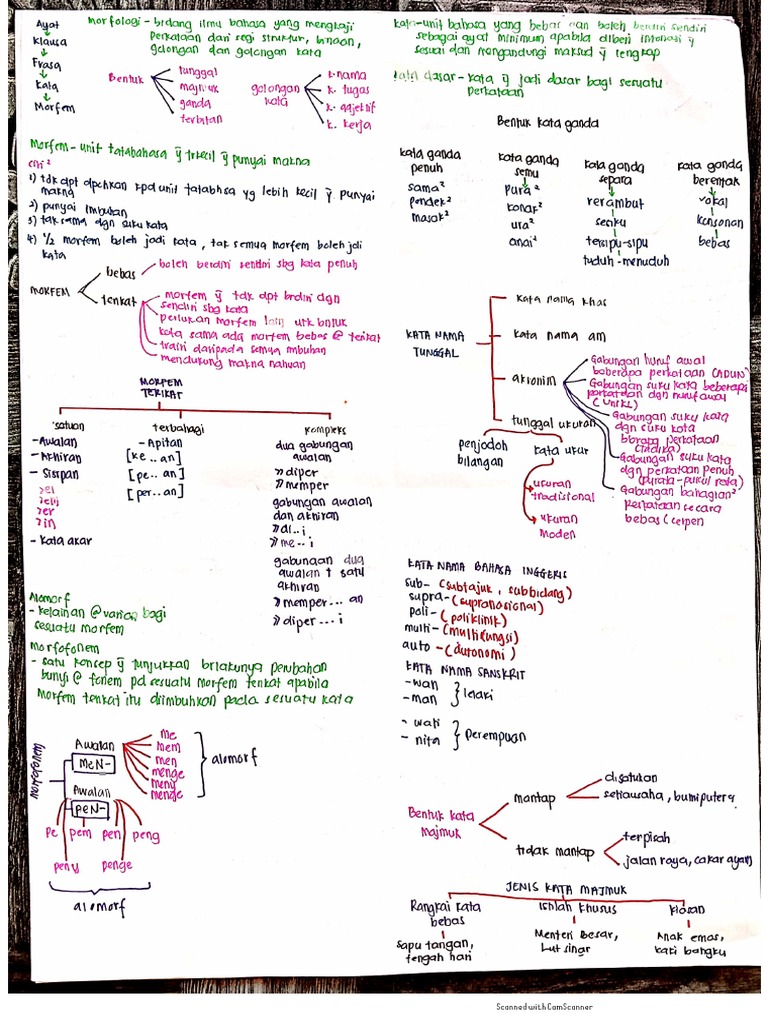 Ayat
Klausa
Frasa
Kata
Morfem
Morfologi - bidang ilmu bahasa yang mengkaji
perkataan dari segi struktur, binaan,
golongan dan golongan kata
Bentuk
tunggal
majmuk
ganda
terbitan
golongan
kata
k. nama
k. tugas
k. adjektif
k. kerja
Morfem - unit tatabahasa ỹ trkecil ỹ punyai makna
ciri²
1) tdk dpt dpchkan kpd unit tatabhsa yg lebih kecil ỹ punyai
makna
2) punyai imbuhan
3) tak sama dgn suku kata
4) ½ morfem boleh jadi kata, tak semua morfem boleh jdi
kata
MORFEM
bebas
boleh berdiri sendiri sbg kata penuh
terikat
morfem ỹ tdk dpt brdiri dgn
sendiri sbg kata
perlukan morfem lain utk bntuk
kata sama ada morfem bebas @ terikat
trdiri daripada semua imbuhan
mendukung makna nahuan
MORFEM
TERIKAT
satuan
- Awalan
- Akhiran
- Sisipan
>el
>em
>er
>in
- kata akar
terbahagi
- Apitan
[ke .. an]
[pe... an]
[per... an]
kompleks
dua gabungan
awalan
>>diper
>>memper
gabungan awalan
dan akhiran
>>di...i
>>me...i
gabungan dua
awalan + satu
akhiran
>>memper... an
>>diper... i
Alomorf
- kelainan @ varian bagi
sesuatu morfem
Morfofonem
- satu konsep ỹ tunjukkan brlakunya perubahan
bunyi @ fonem pd sesuatu morfem terikat apabila
morfem terikat itu diimbuhkan pada sesuatu kata
Awalan
MeN-
me
mem
men
menge
meny
alomorf
Awalan
peN-
pe pem pen peng
peny penge
alomorf
kata - unit bahasa yang bebas dan boleh berdiri sendiri
sebagai ayat minimum apabila diberi intonasi ỹ
sesuai dan mengandungi maksud ỹ lengkap
kata dasar - kata ỹ jadi dasar bagi sesuatu
perkataan
Bentuk kata ganda
kata ganda
penuh
sama²
pendek²
masak²
kata ganda
semu
pura²
konar²
ura²
anai²
kata ganda
separa
rerambut
seriku
tersipu-sipu
tuduh-menuduh
kata ganda
berentak
vokal
konsonan
bebas
KATA NAMA
TUNGGAL
kata nama khas
kata nama am
akronim
Gabungan huruf awal
beberapa perkataan (ADUN)
Gabungan suku kata beberapa
perkataan dgn huruf awal
(UniKL)
Gabungan suku kata
dgn suku kata
bbrapa perkataan
(tadika)
Gabungan suku kata
dgn perkataan penuh
(purata - pukul rata)
Gabungan bahagian²
perkataan secara
bebas (cerpen
tunggal ukuran
penjodoh
bilangan
kata ukur
ukuran
tradisional
ukuran
moden
KATA NAMA BAHASA INGGERIS
sub- (subtajuk, subbidang)
supra- (supranasional)
poli- (poliklinik)
multi- (multifungsi)
auto- (autonomi)
KATA NAMA SANSKRIT
- wan
- man
lelaki
- wati
- nita
perempuan
Bentuk kata
majmuk
mantap
disatukan
setiausaha, bumiputera
tidak mantap
terpisah
jalan raya, cakar ayam
JENIS KATA MAJMUK
Rangkai kata
bebas
Sapu tangan,
tengah hari
Istilah khusus
Menteri Besar,
Lut sinar
kiasan
Anak emas,
kaki bangku
Scanned with CamScanner